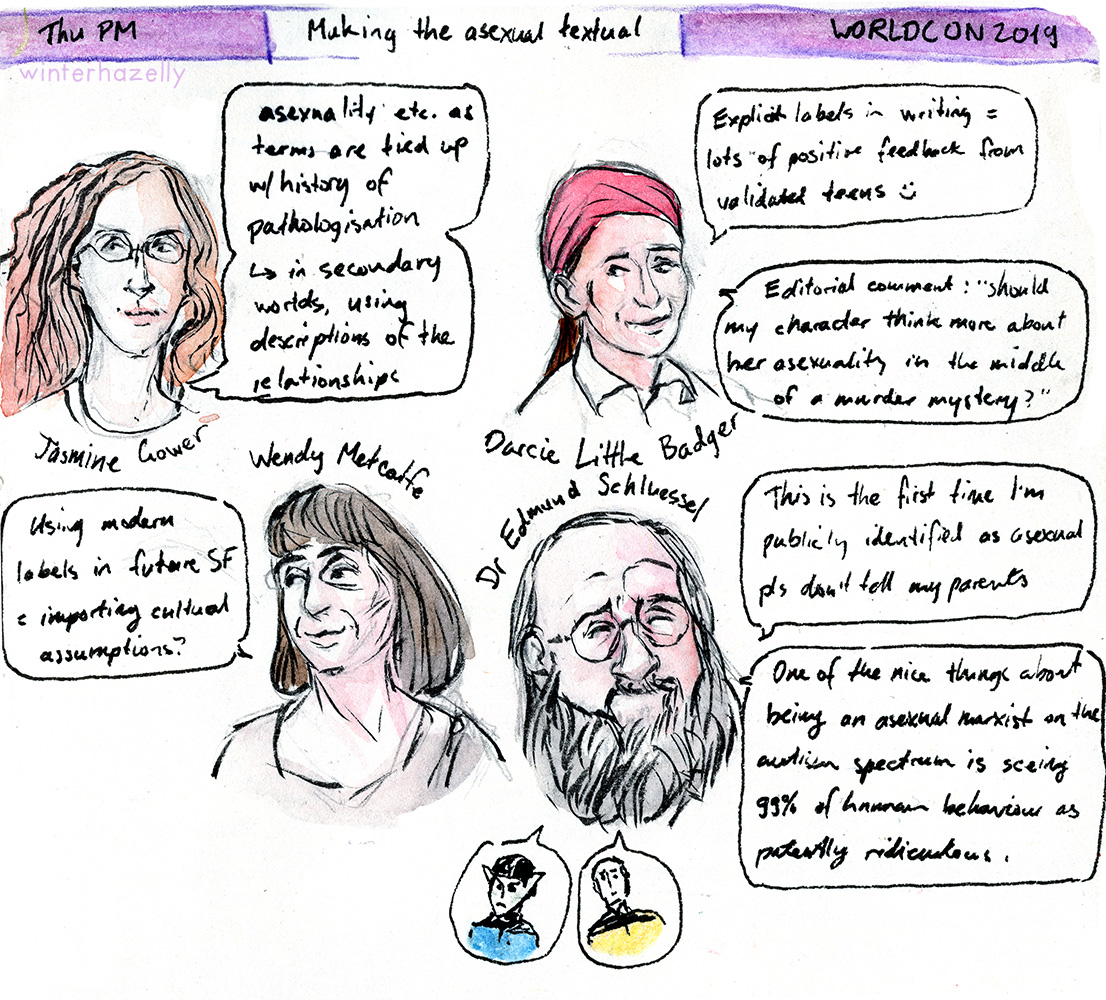 Thu PM
Making the asexual textual
WORLDCON 2019
winterhazelly
asexuality etc. as
terms are tied up
w/ history of
pathologisation
↳ in secondary
worlds, using
descriptions of the
relationships
Jasmine Gower
Explicit labels in writing =
lots of positive feedback from
validated teens :)
Editorial comment: "should
my character think more about
her asexuality in the middle
of a murder mystery?"
Darcie Little Badger
Wendy Metcalfe
Using modern
labels in future SF
= importing cultural
assumptions?
Dr Edmund Schluessel
This is the first time I'm
publicly identified as asexual
pls don't tell my parents
One of the nice things about
being an asexual marxist on the
autism spectrum is seeing
99% of human behaviour as
patently ridiculous.